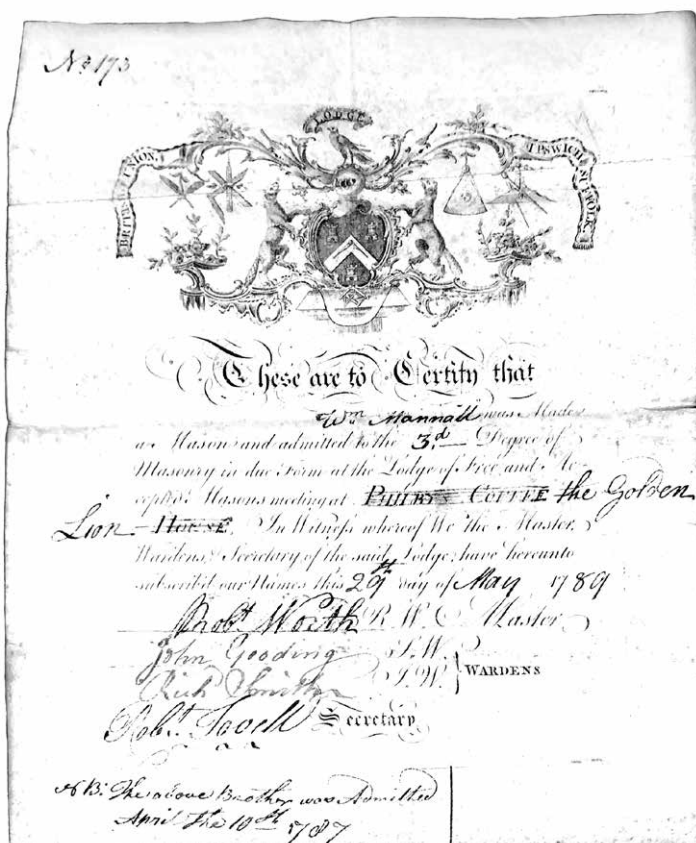 No 173
LODGE
BRITISH UNION.
IPSWICH SUFFOLK.
These are to Certify that
Wm Mannall was Made
a Mason and admitted to the 3.d Degree of
Masonry in due Form at the Lodge of Free and Ac-
cepted Masons meeting at PHILBY'S COFFEE the Golden
Lion HOUSE. In Witness whereof We the Master,
Wardens, & Secretary of the said Lodge, have hereunto
subscrib'd our Names this 29th day of May 1789
Robt Worth R.W. Master
John Gooding S.W.
Rich J.W. WARDENS
Robt Tovell Secretary
NB: The above Brother was Admitted
April the 10th 1787